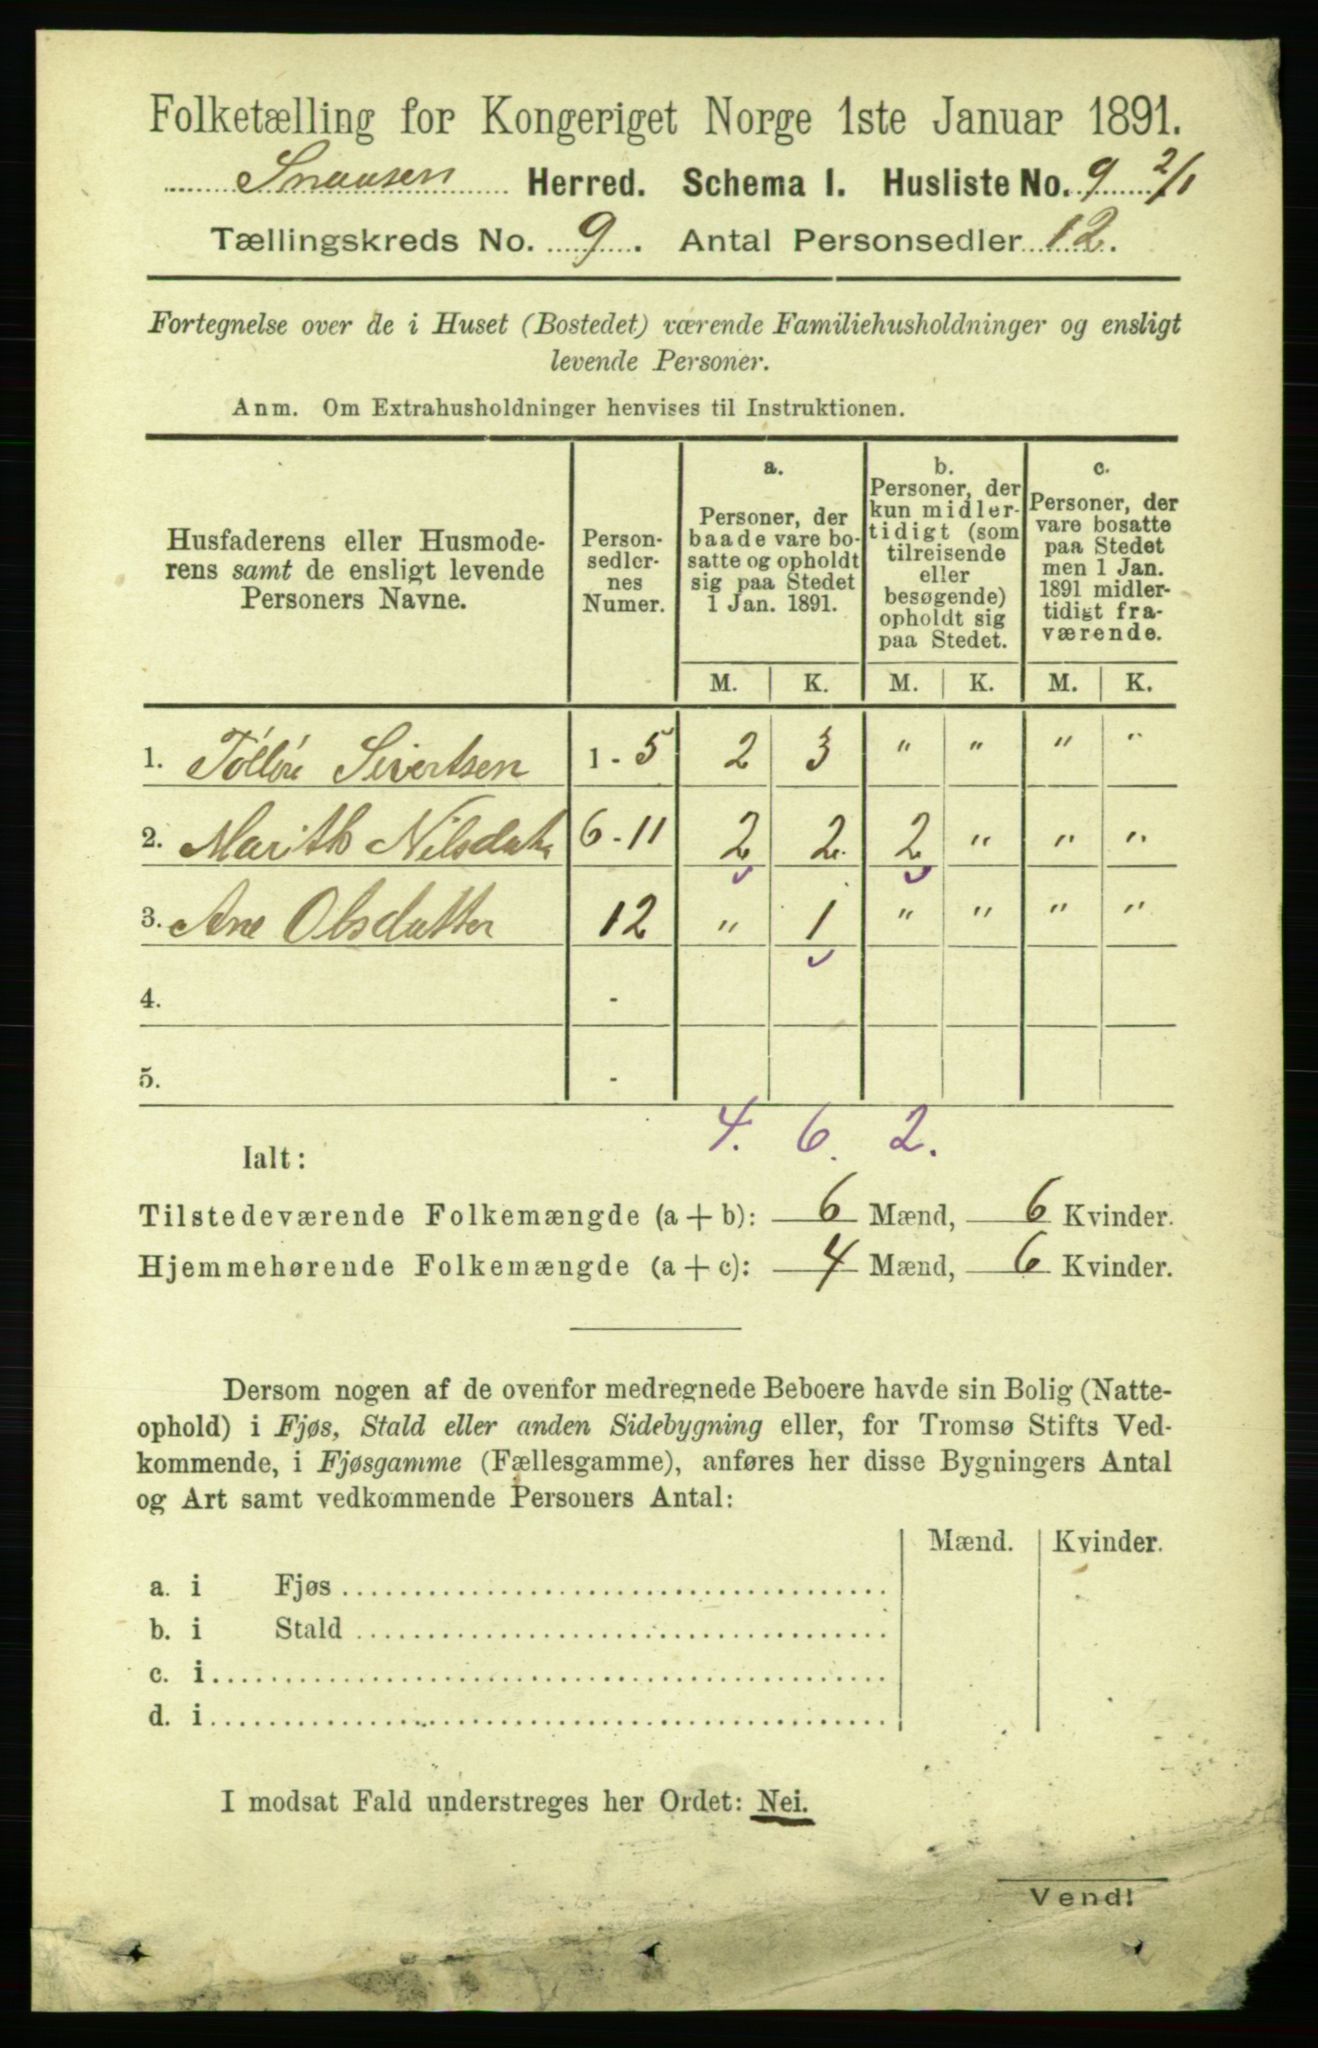 Folketælling for Kongeriget Norge 1ste Januar 1891.
Snaasen Herred. Schema I. Husliste No. 9 2/1
Tællingskreds No. 9. Antal Personsedler 12.
Fortegnelse over de i Huset (Bostedet) værende Familiehusholdninger og ensligt
levende Personer.
Anm. Om Extrahusholdninger henvises til Instruktionen.
Husfaderens eller Husmode-
rens samt de ensligt levende
Personers Navne.
Person-
sedler-
nes
Numer.
a.
Personer, der
baade vare bo-
satte og opholdt
sig paa Stedet
1 Jan. 1891.
b.
Personer, der
kun midler-
tidigt (som
tilreisende
eller
besøgende)
opholdt sig
paa Stedet.
c.
Personer, der
vare bosatte
paa Stedet
men 1 Jan.
1891 midler-
tidigt fra-
værende.
M. K. M. K. M. K.
1. Sivertsen 1 - 5 2 3 " " " "
2. Marith Nilsdatt. 6 - 11 2 2 2 " " "
3. Ane Olsdatter 12 " 1 " " " "
4. -
5. -
4. 6. 2.
Ialt:
Tilstedeværende Folkemængde (a + b): 6 Mænd, 6 Kvinder.
Hjemmehørende Folkemængde (a + c): 4 Mænd, 6 Kvinder.
Dersom nogen af de ovenfor medregnede Beboere havde sin Bolig (Natte-
ophold) i Fjøs, Stald eller anden Sidebygning eller, for Tromsø Stifts Ved-
kommende, i Fjøsgamme (Fællesgamme), anføres her disse Bygningers Antal
og Art samt vedkommende Personers Antal:
Mænd. Kvinder.
a. i Fjøs
b. i Stald
c. i
d. i
I modsat Fald understreges her Ordet: Nei.
Vend!